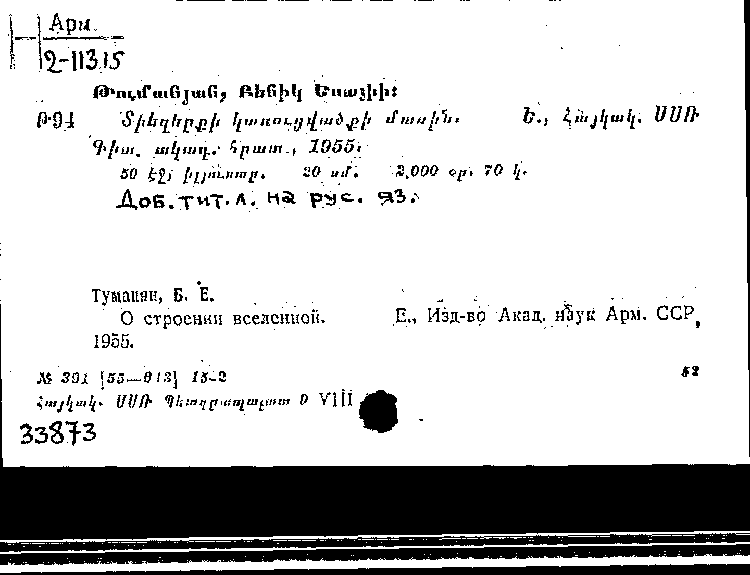 Арм.
2-11315
Թումանյան, Բենիկ Եսայիի։
Թ94 Տիեզերքի կառուցվածքի մասին. Ե., Հայկակ. ՍՍՌ
Գիտ. ակադ. հրատ., 1955.
50 էջ իլյուստր. 20 սմ. 2,000 օր. 70 կ.
Доб. тит. л. на рус. яз.
Туманян, Б. Е.
О строении вселенной. Е., Изд-во Акад. наук Арм. ССР,
1955.
№ 391 [55—613] 15-2 52
Հայկակ. ՍՍՌ Պետգրապալատ 9 VIII
33873